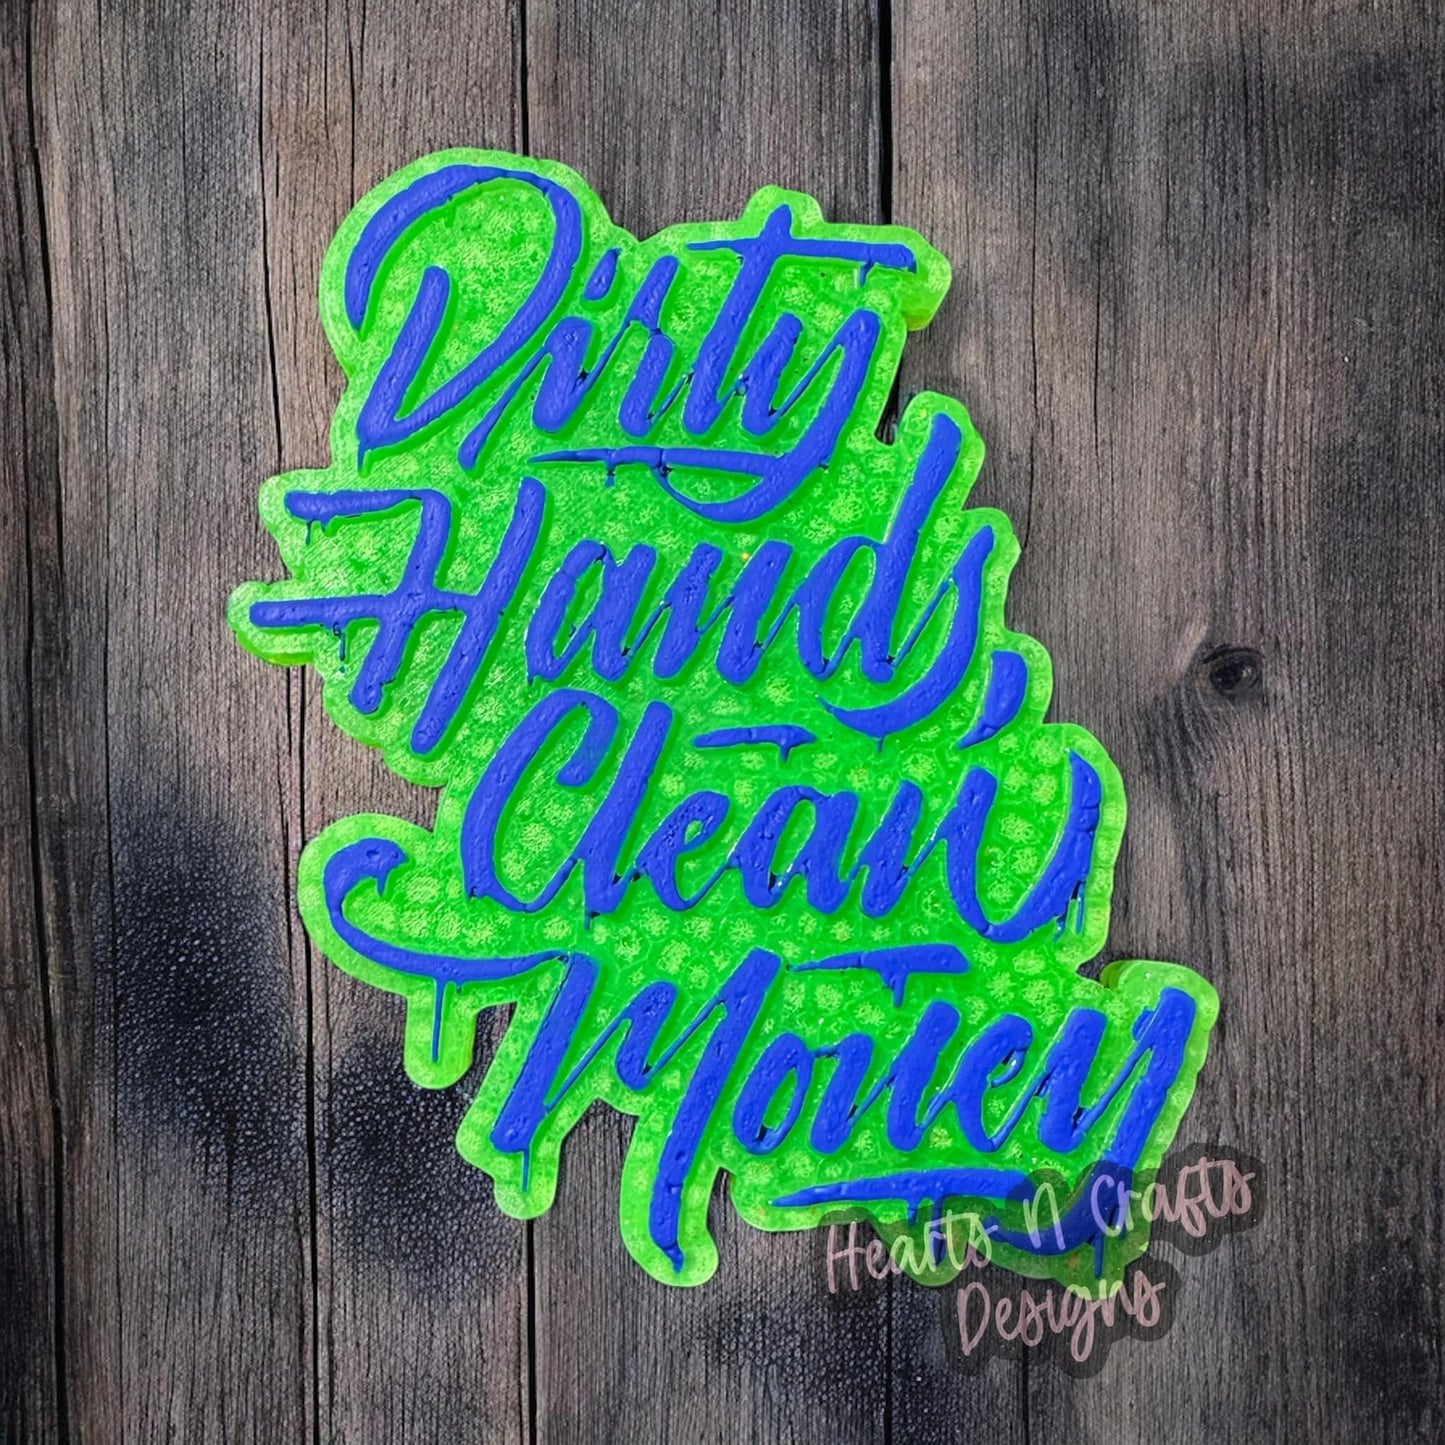 Dirty
Hands,
Clean
Money
Hearts N Crafts
Designs